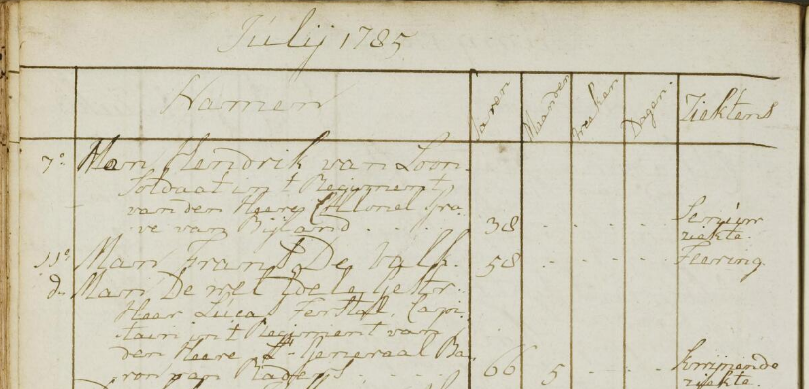 Julij 1785
Namen Jaren Maanden weeken Dagen. Ziektens
7e Man Hendrik van Loon.
Soldaat in 't Regiment
van den Heere Collonel Gra-
ve van Bijland . . . . 38 . . . Senuw
ziekte
11e Man Frans De Valk. 58 . . . Teering
d. Man De wel Edele gestr.
Heer Lucas Capi-
tain in 't Regiment van
den Heere Lt Generaal Ba-
ron van 66 5 . .
ziekte